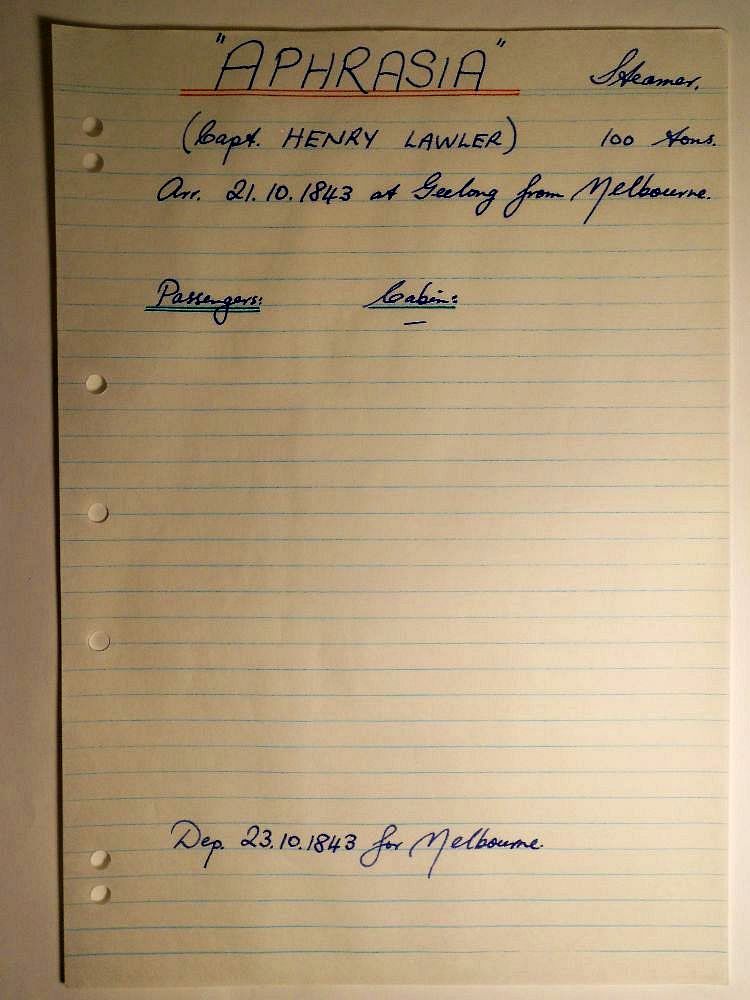 "APHRASIA" Steamer.
(Capt. HENRY LAWLER) 100 tons.
Arr. 21.10.1843 at Geelong from Melbourne.
Passengers: Cabin:
—
Dep. 23.10.1843 for Melbourne.